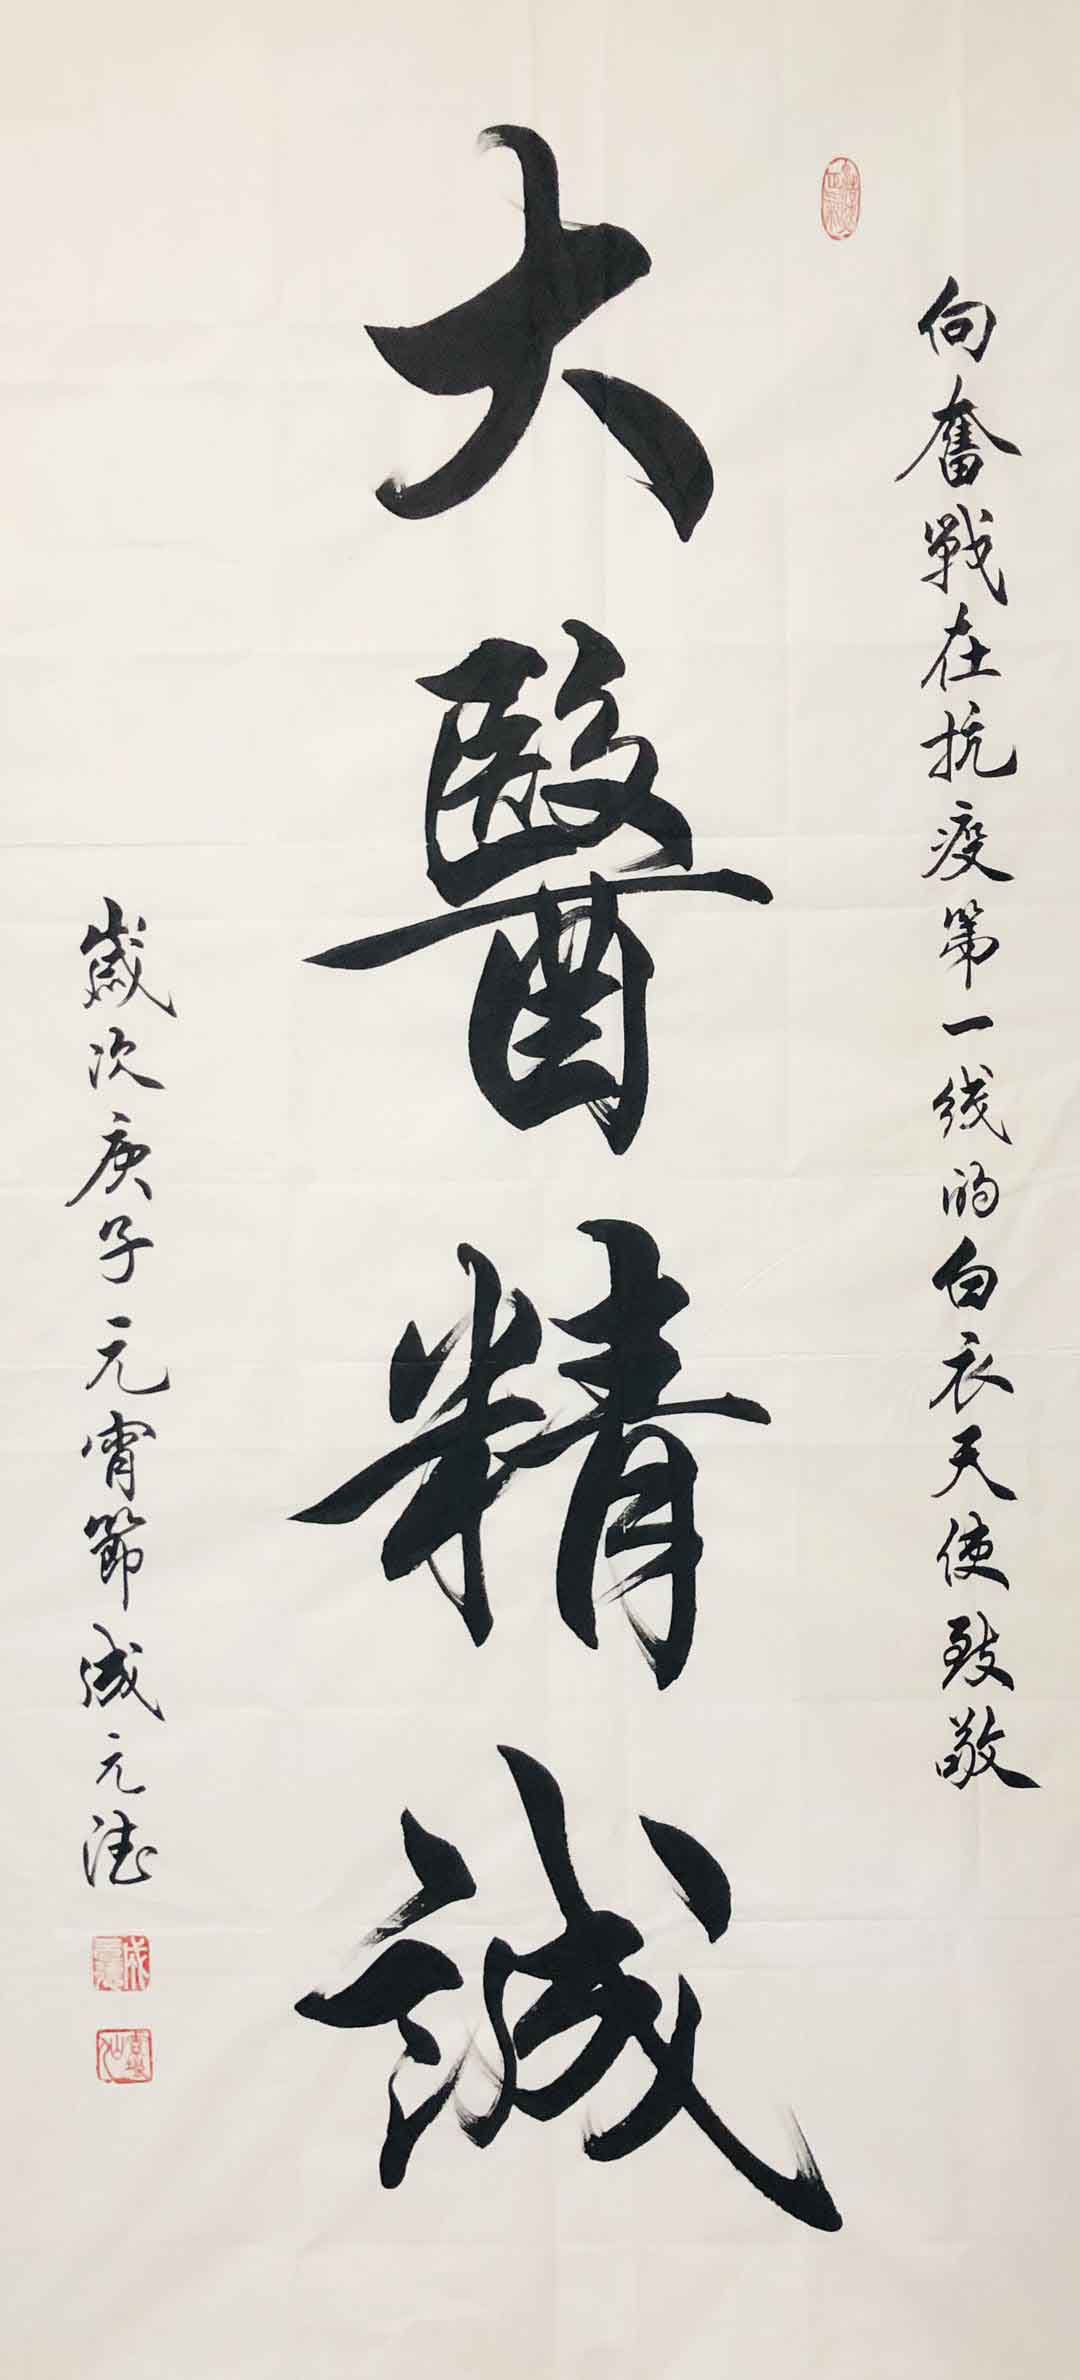 向奮戰在抗疫第一线的白衣天使致敬
大醫精誠
歲次庚子元宵節成元德